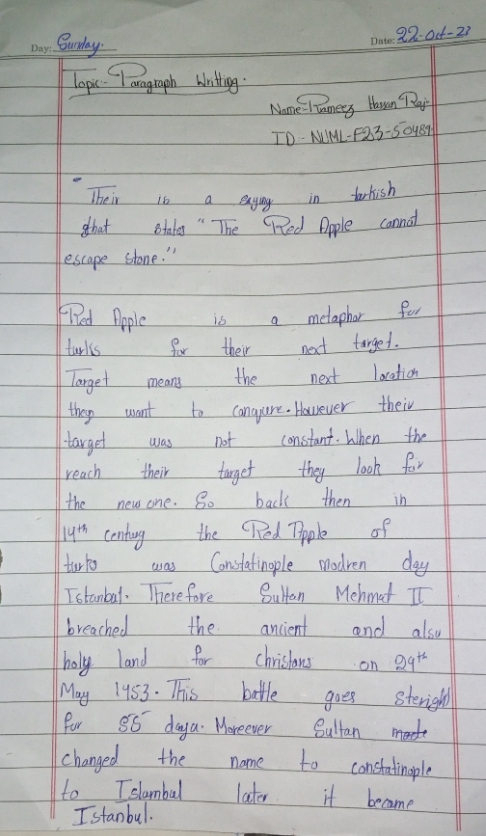 Day: Sunday. Date: 22-Oct-23
Topic:- Paragraph Writting.
Name:- Rameez Hassan Raj.
ID:- NUML-F23-50489.
Their is a saying in turkish
that states "The Red Apple cannot
escape stone."
Red Apple is a metaphor for
turks for their next target.
Target means the next location
they want to conqure. However their
target was not constant. When the
reach their target they look for
the new one. So back then in
14th century the Red Apple of
turks was Constatinople modren day
Istanbul. Therefore Sultan Mehmat II
breached the ancient and also
holy land for christans on 29th
May 1453. This battle goes steright
for 55 daya. Moreever Sultan made
changed the name to constatinaple
to Islambul later it became
Istanbul.